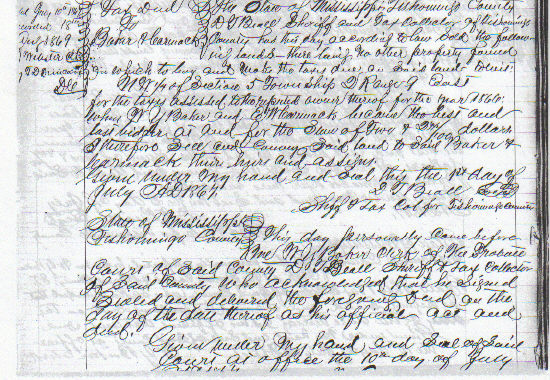 Tax Deed The State of Mississippi Tishomingo County
To D T Beall Sheriff and Tax Collector of Tishomingo
Baker & Carmack County has this day according to law Sold the follow-
ing lands - there being no other property found
on which to levy and make the taxes due on said land towit:
NW/4 of Section 5 Township 2 Range 9 East
for the taxes assessed to the reputed owner thereof for the year 1866:
when W Y Baker and Carmack became the best and
last bidder at and for the Sum of Two & dollars
I therefore Sell and Convey Said land to Said Baker &
Carmack their heyrs and assigns.
Given under My hand and Seal this the 1st day of
July AD 1867
D T Beall Seal
Shff & Tax Col for Tishomingo County
State of Mississippi
Tishomingo County This day personally came before
me W Y Baker Clerk of the Probate
Court of Said County D T Beall Sheriff & Tax Collector
of Said County who acknowledged that he Signed
Sealed and delivered the foregoing Deed on the
day of the date thereof as his official act and
deed.
Given under My hand and Seal of Said
Court at office the 10th day of July